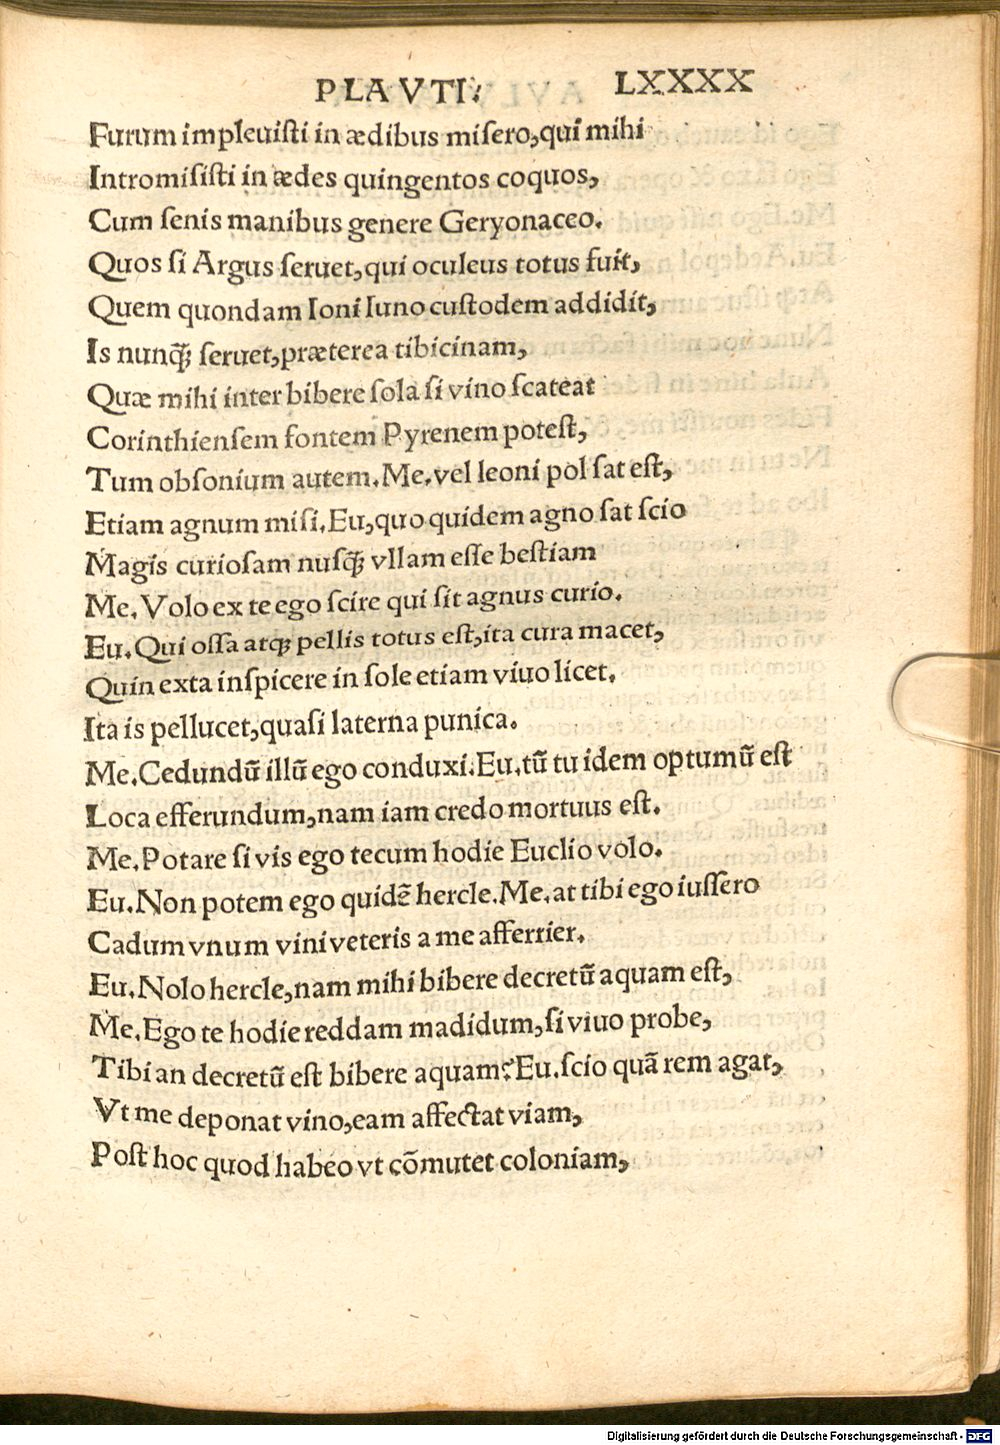 PLAVTI: LXXXX
Furum impleuisti in ædibus misero,qui mihi
Intromisisti in ædes quingentos coquos,
Cum senis manibus genere Geryonaceo.
Quos si Argus seruet,qui oculeus totus fuit,
Quem quondam Ioni Iuno custodem addidit,
Is nunq̃ seruet,præterea tibicinam,
Quæ mihi inter bibere sola si vino scateat
Corinthiensem fontem Pyrenem potest,
Tum obsonium autem.Me.vel leoni pol sat est,
Etiam agnum misi.Eu,quo quidem agno sat scio
Magis curiosam nusq̃ vllam esse bestiam
Me.Volo ex te ego scire qui sit agnus curio.
Eu.Qui ossa atqꝫ pellis totus est,ita cura macet,
Quin exta inspicere in sole etiam viuo licet.
Ita is pellucet,quasi laterna punica.
Me.Cedundũ illũ ego conduxi.Eu.tũ tu idem optumũ est
Loca efferundum,nam iam credo mortuus est.
Me.Potare si vis ego tecum hodie Euclio volo.
Eu.Non potem ego quidẽ hercle.Me.at tibi ego iussero
Cadum vnum vini veteris a me afferrier.
Eu.Nolo hercle,nam mihi bibere decretũ aquam est,
Me.Ego te hodie reddam madidum,si viuo probe,
Tibi an decretũ est bibere aquam?Eu.scio quã rem agat,
Vt me deponat vino,eam affectat viam,
Post hoc quod habeo vt cõmutet coloniam,
Digitalisierung gefördert durch die Deutsche Forschungsgemeinschaft - DFG